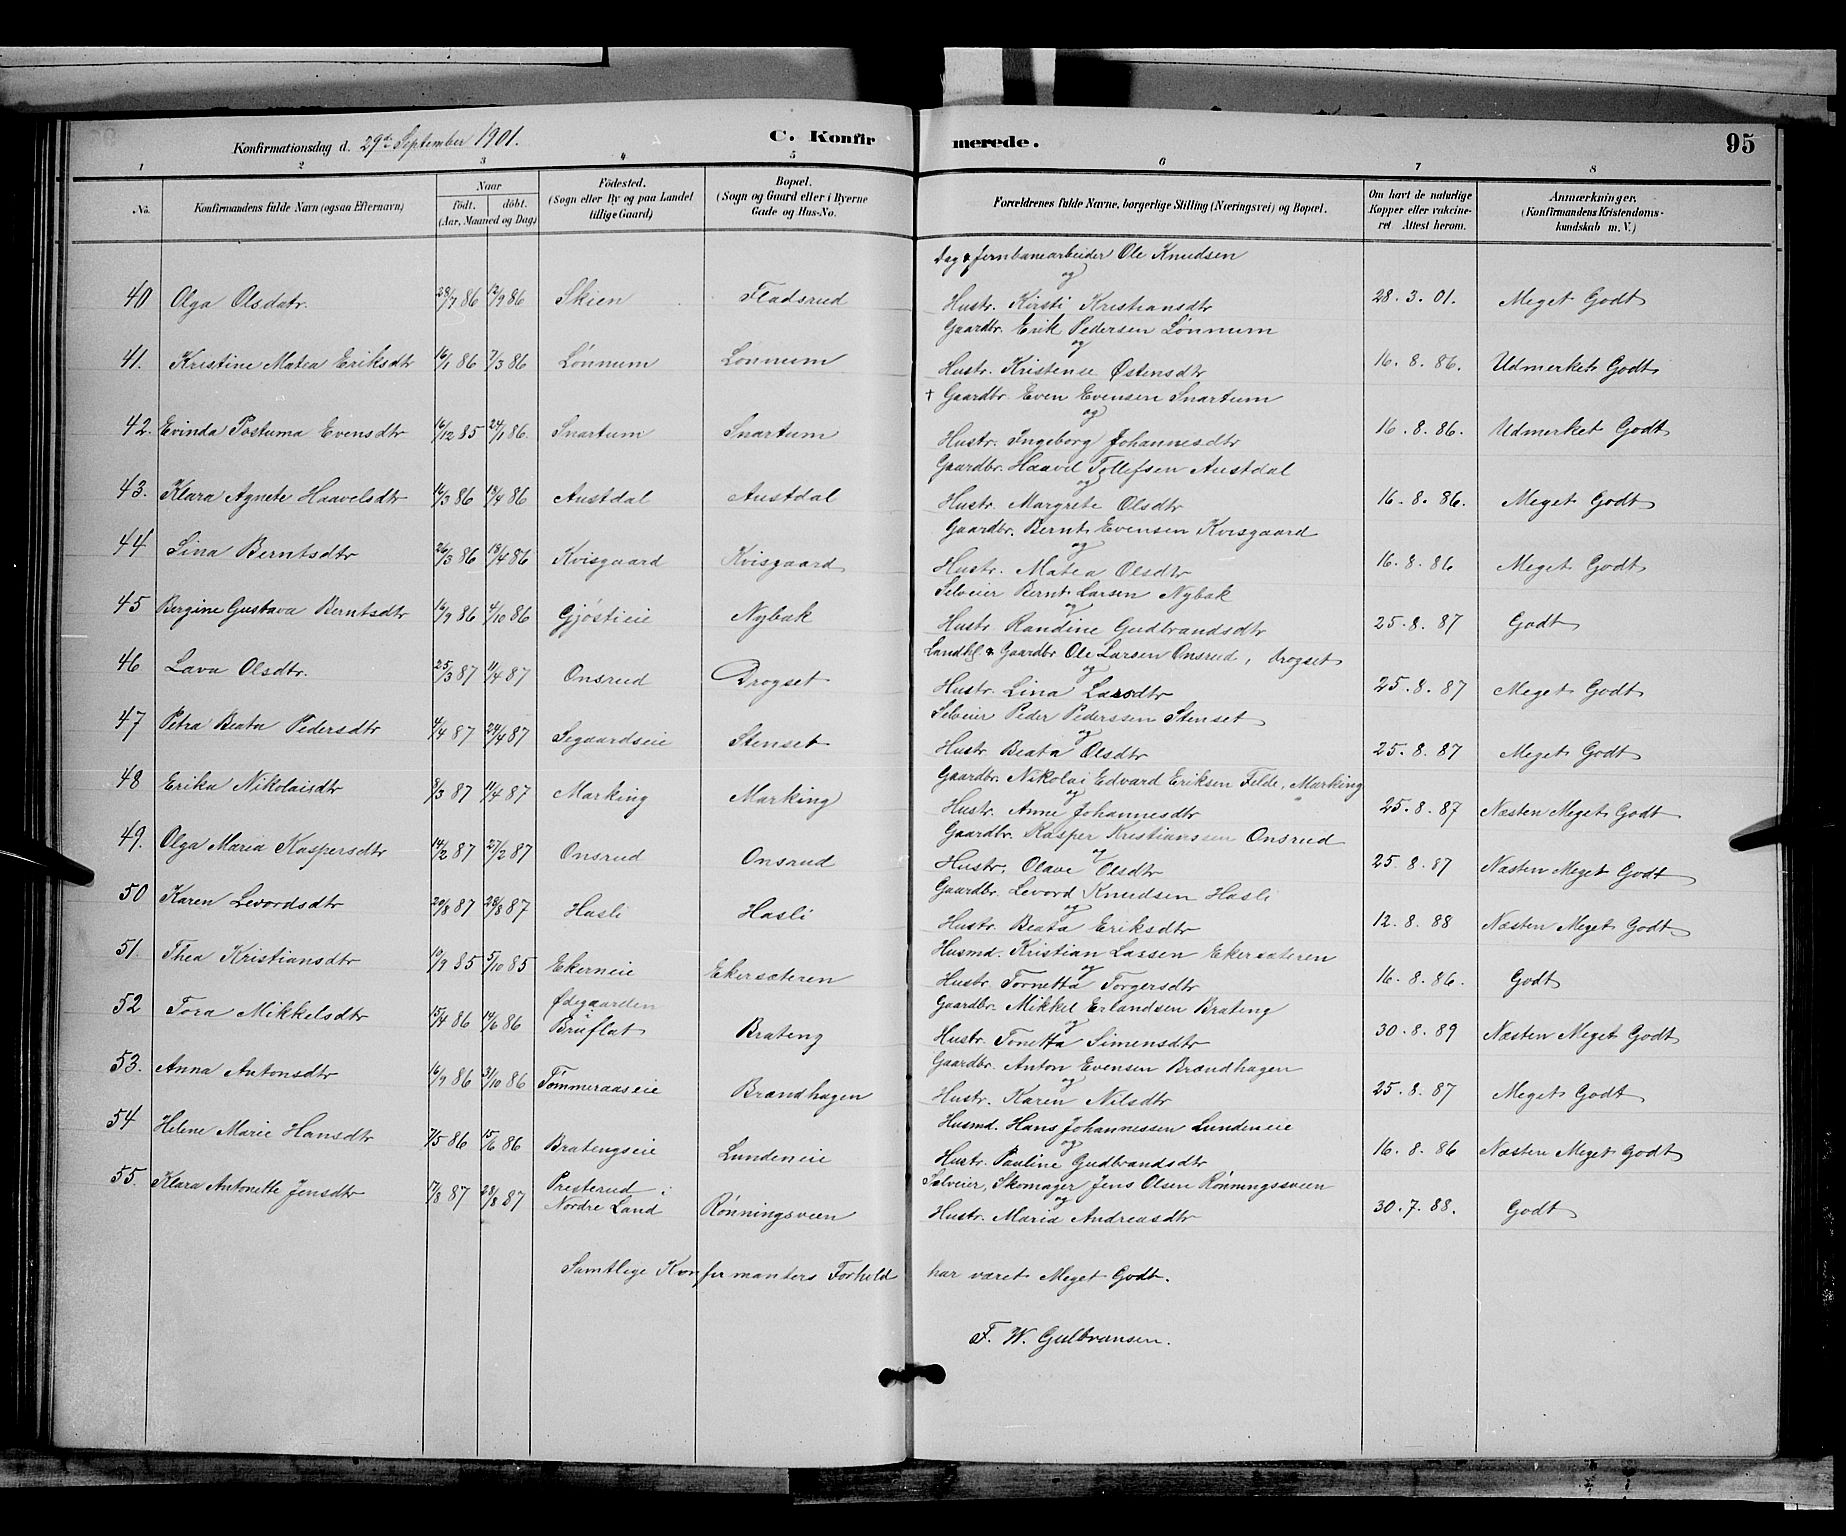 Konfirmationsdag d. 29de September 1901. C. Konfirmerede. 95
1 2 3 4 5 6 7 8
No. Konfirmandens fulde Navn (ogsaa Efternavn) Naar Födt. döbt. (Aar, Maaned og Dag) Födested. (Sogn eller By og paa Landet tillige Gaard) Bopæl. (Sogn og Gaard eller i Byerne Gade og Hus-No. Forældrenes fulde Navne, borgerlige Stilling (Næringsvei) og Bopæl. Om havt de naturlige Kopper eller vakcineret Attest herom. Anmærkninger. (Konfirmandens Kristendomskundskab m. V.)
Dag & Jernbanearbeider Ole Knudsen
og
40 Olga Olsdatr. 28/7 86 12/9 86 Skien Fladsrud Hustr. Kirsti Kristiansdtr 28.3.01. Meget Godt
Gaardbr. Erik Pedersen Lønnum
og
41. Kristine Matea Eriksdtr 16/1 86 7/3 86 Lønnum Lønnum Hustr. Kristense Østensdtr 16.8.86. Udmerket Godt
† Gaardbr. Even Evensen Snartum
og
42. Evinda Postuma Evensdtr 16/12 85 24/1 86. Snartum Snartum Hustr. Ingeborg Johannesdtr 16.8.86. Udmerket Godt
Gaardbr. Haavel Tollefsen Austdal
og
43. Klara Agnete Haavelsdtr 14/3 86 18/4 86 Austdal Austdal Hustr. Margrete Olsdtr 16.8.86. Meget Godt
Gaardbr. Bernt Evensen Kvisgaard
og
44 Lina Berntsdtr 26/3 86 18/4 86 Kvisgaard Kvisgaard Hustr. Matea Olsdtr 16.8.86 Meget Godt
Selveier Bernt Larsen Nybak
og
45 Bergine Gustava Berntsdtr 16/9 86 4/10 86 Gjøstieie Nybak Hustr. Randine Gudbrandsdtr 25.8.87 Godt
Landhl & Gaardbr Ole Larsen Onsrud, Drogset
og
46 Lava Olsdtr. 25/3 87 11/4 87 Onsrud Drogset Hustr. Lina Larsdtr 25.8.87 Meget Godt
Selveier Peder Pederssen Stenset
og
47 Petra Beata Pedersdtr 4/4 87 24/4 87 Segaardseie Stenset Hustr Beata Olsdtr 25.8.87 Meget Godt
Gaardbr. Nikolai Edvard Eriksen Felde, Marking
og
48 Erika Nikolaisdtr 8/3 87 11/4 87 Marking Marking Hustr. Anne Johannesdtr 25.8.87 Næsten Meget Godt
Gaardbr. Kasper Kristianssen Onsrud
og
49. Olga Maria Kaspersdtr 14/2 87 27/2 87 Onsrud Onsrud Hustr. Olave Olsdtr 25.8.87 Næsten Meget Godt
Gaardbr. Levord Knudsen Hasli
og
50 Karen Levordsdtr 20/8 87 28/8 87 Hasli Hasli Hustr. Beata Eriksdtr 12.8.88 Næsten Meget Godt
Husmd. Kristian Larsen Ekersæteren
og
51. Thea Kristiansdtr 10/9 85 5/10 85 Ekerneie Ekersæteren Hustr. Tornetta Torgersdtr 16.8.86. Godt
Gaardbr. Mikkel Erlandsen Brateng
og
52 Tora Mikkelsdtr 15/4 86 14/6 86 Ødegaarden i Bruflat Brateng Hustr. Tonetta Simensdtr 30.8.89 Næsten Meget Godt
Gaardbr. Anton Evensen Brændhagen
og
53. Anna Antonsdtr 16/9 86 31/10 86 Tømmeraaseie Brændhagen Hustr. Karen Nilsdtr 25.8.87 Meget Godt
Husmd. Hans Johannessen Lundeneie
og
54 Helene Marie Hansdtr 7/5 86 15/6 86 Bratengseie Lundeneie Hustr. Pauline Gudbrandsdtr 16.8.86 Næsten Meget Godt
Selveier, Skomager Jens Olsen Rønningsveen
og
55. Klara Antonette Jensdtr 17/8 87 28/8 87 Presterud i Nordre Land Rønningsveen Hustr. Maria Andreasdtr 30.7.88. Godt
Samtlige Konfirmanters Forhold har været Meget Godt.
F. W. Gulbransen.